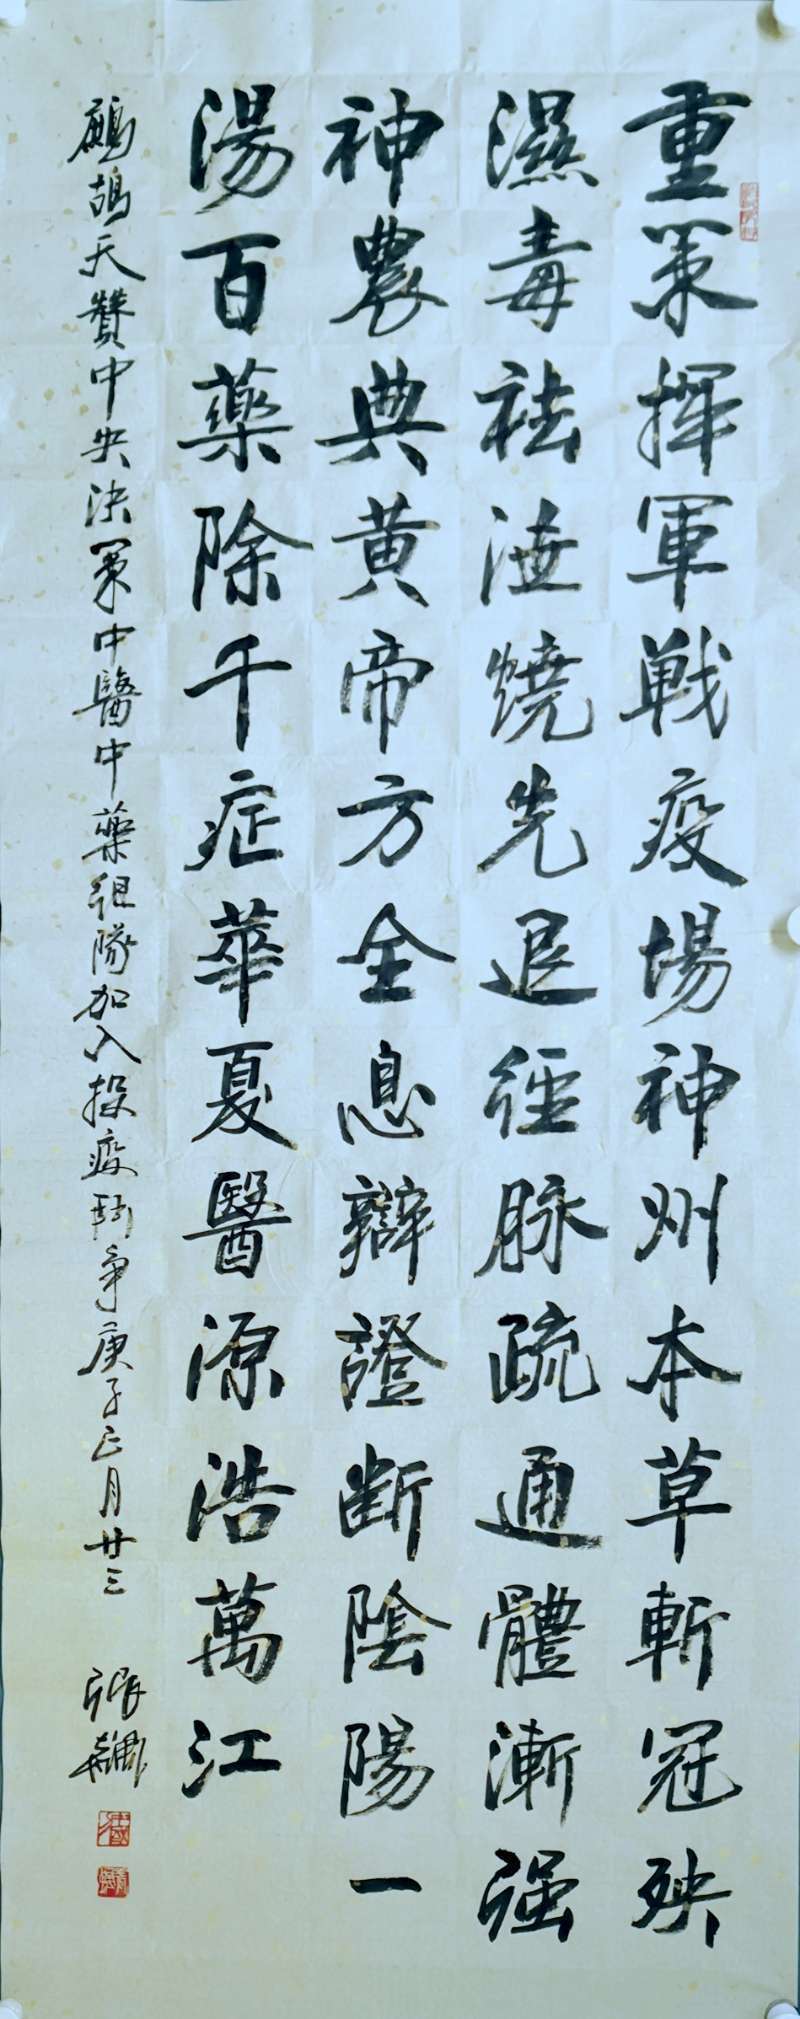 重策揮軍戰疫場神州本草斬冠殃
濕毒祛湮燒先退經脉疏通體漸强
神農典黄帝方全息辯證斷陰陽一
湯百藥除千症華夏醫源浩萬江
鷓鴣天贊中央决策中醫中藥組隊加入投疫鬥争庚子正月廿三
張